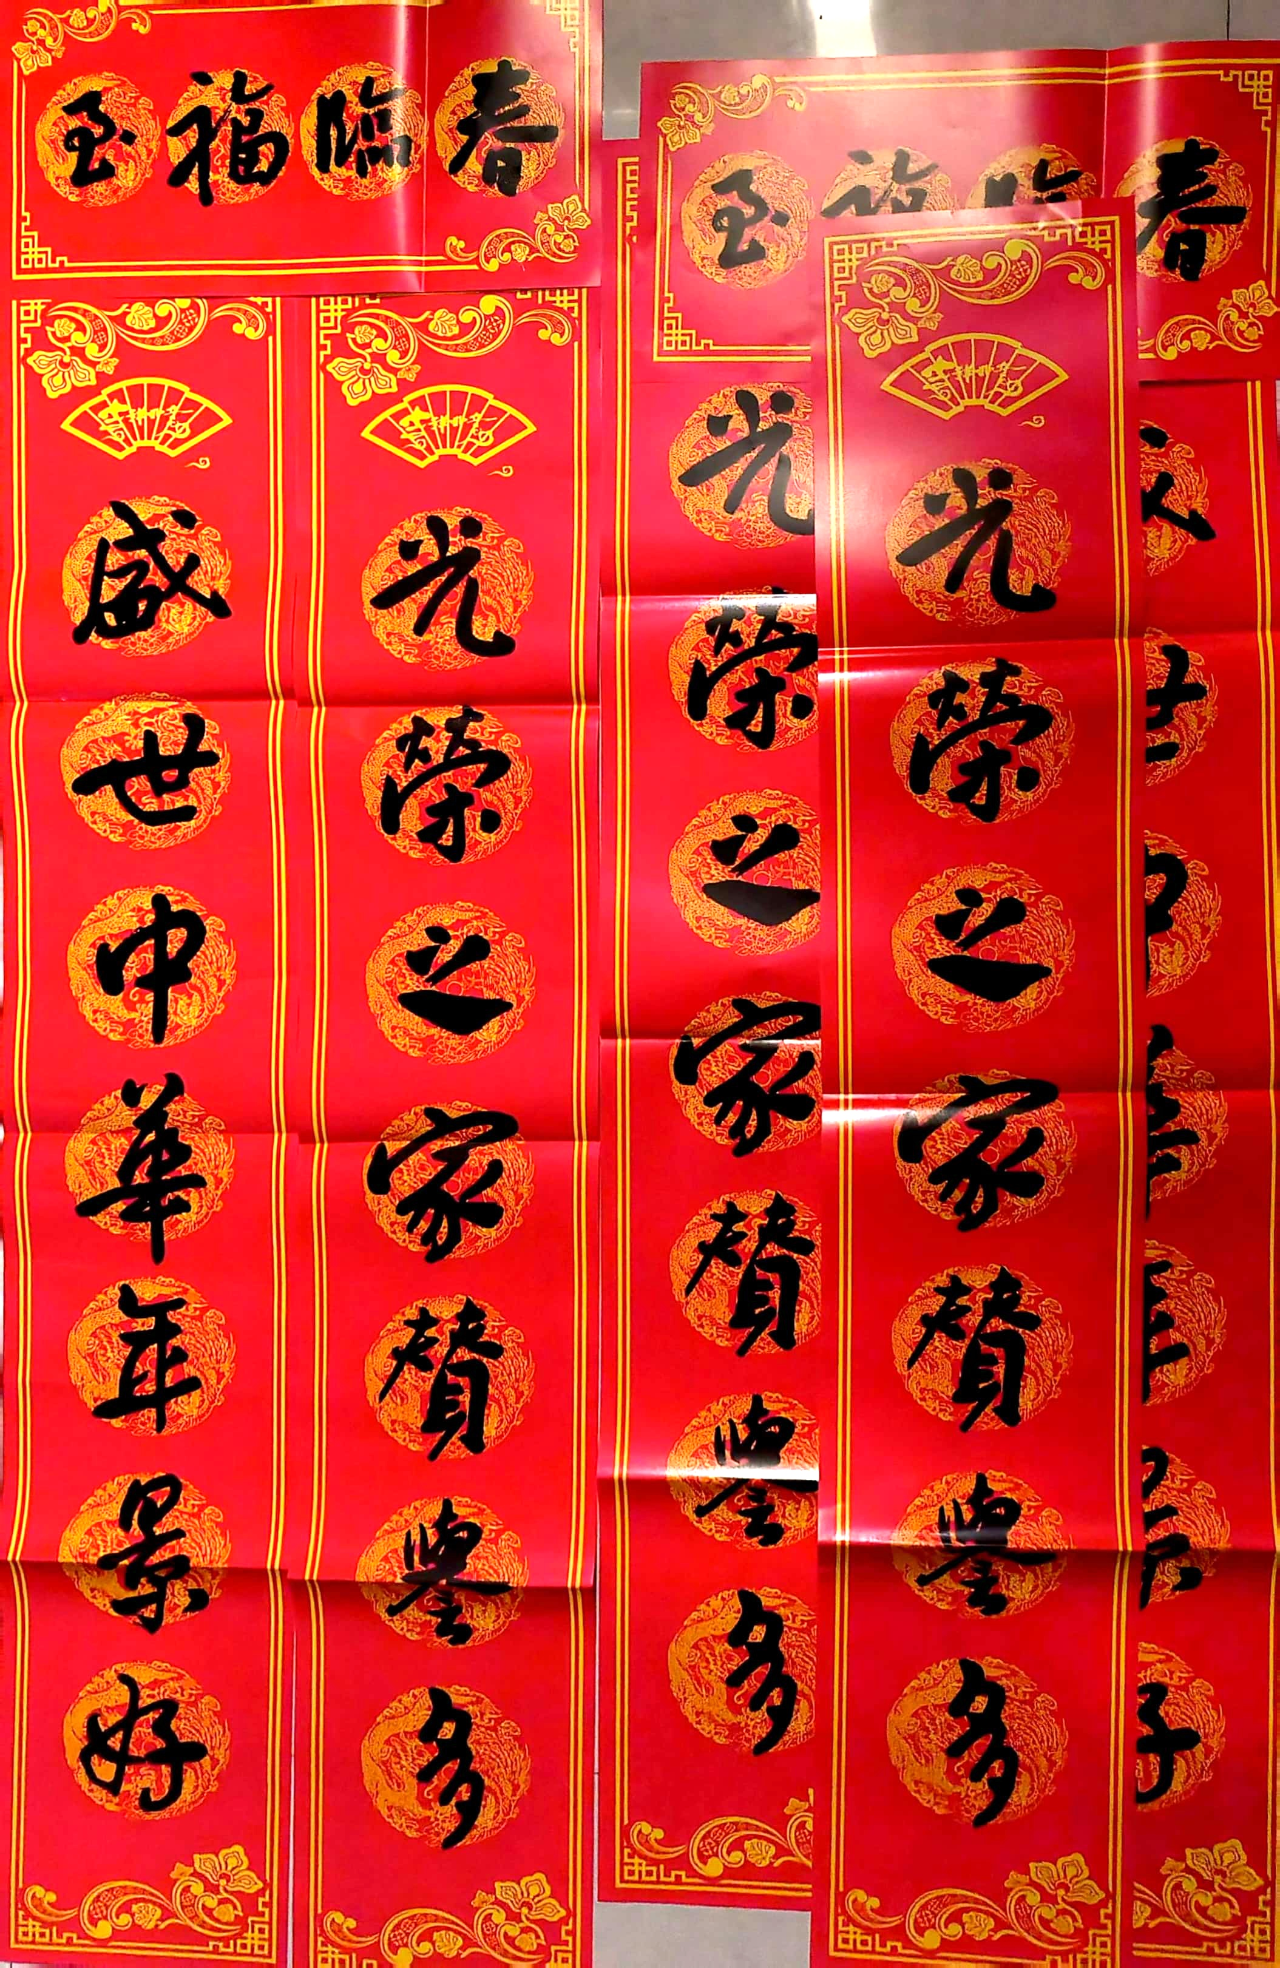 春臨福至
光榮之家贊譽多
盛世中華年景好
春臨福至
光榮之家贊譽多
光榮之家贊譽多